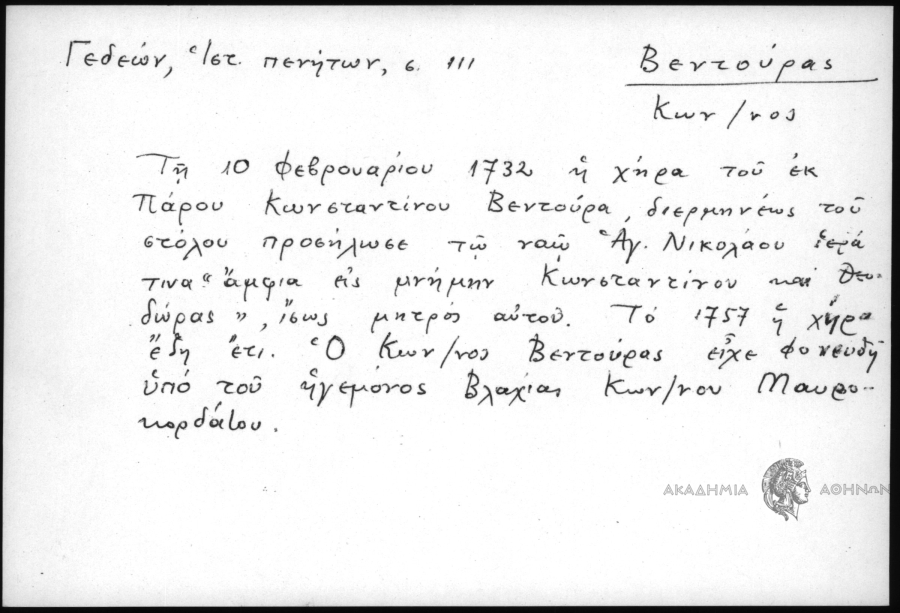 Γεδεών, Ἱστ. πενήτων, σ. 111
Βεντούρας
Κων/νος
Τῇ 10 Φεβρουαρίου 1732 ἡ χήρα τοῦ ἐκ
Πάρου Κωνσταντίνου Βεντούρα, διερμηνέως τοῦ
στόλου προσήλωσε τῷ ναῷ Ἁγ. Νικολάου ἱερά
τινα "ἄμφια εἰς μνήμην Κωνσταντίνου καί Θεο-
δώρας", ἴσως μητρός αὐτοῦ. Τό 1757 ἡ χήρα
ἔζη ἔτι. Ὁ Κων/νος Βεντούρας εἶχε φονευθῆ
ὑπό τοῦ ἡγεμόνος Βλαχίας Κων/νου Μαυρο-
κορδάτου.
ΑΚΑΔΗΜΙΑ ΑΘΗΝΩΝ